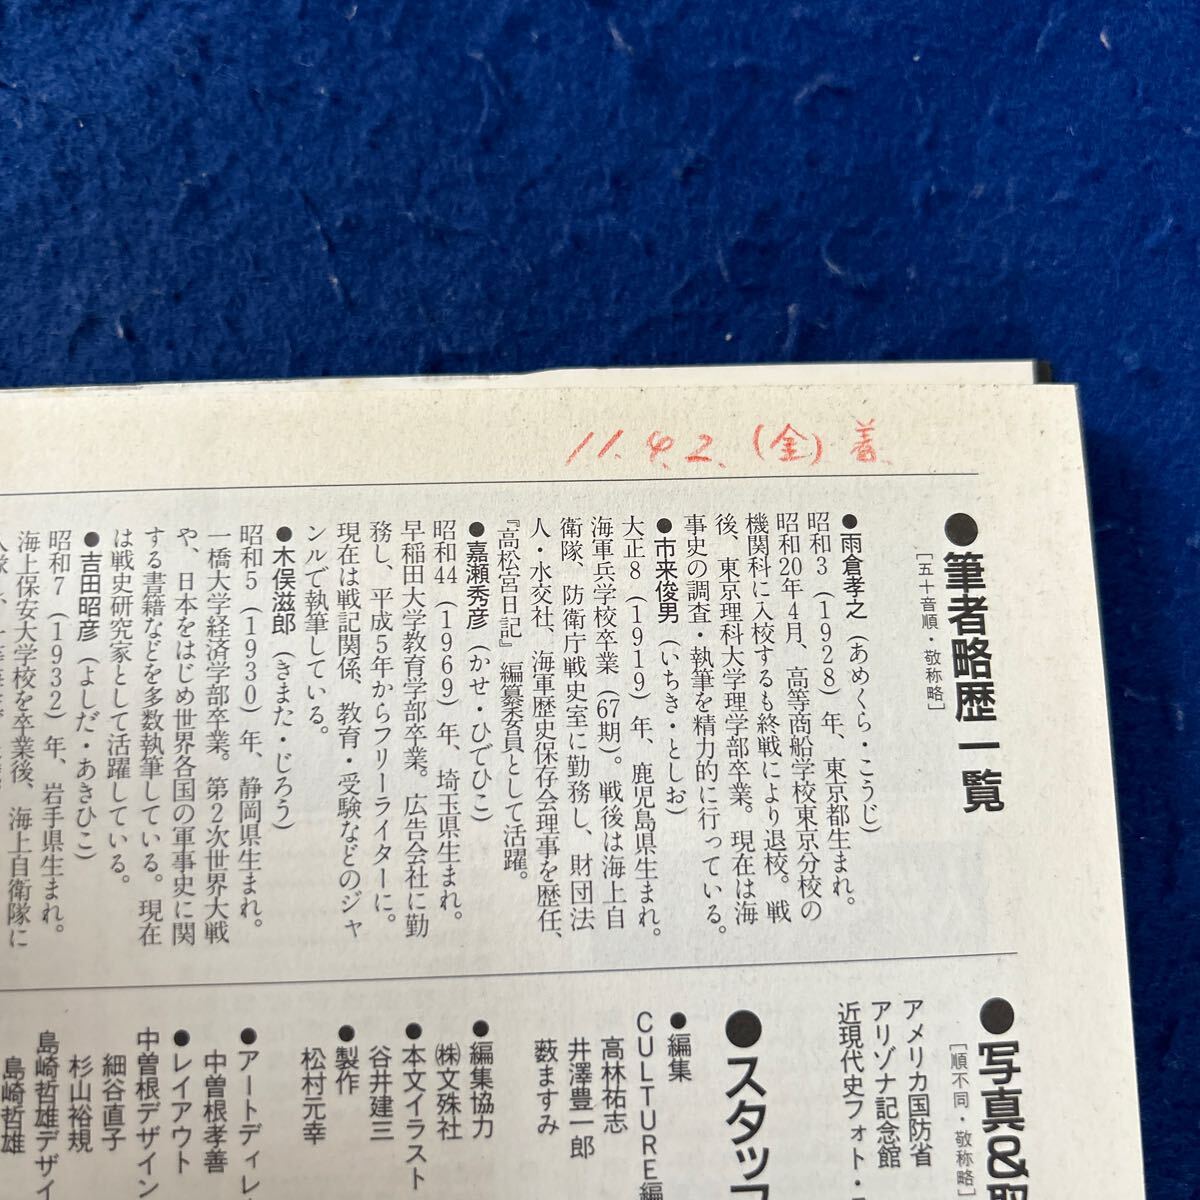 11.4.2.(金)着
●筆者略歴一覧
[五十音順・敬称略]
●雨倉孝之（あめくら・こうじ）
昭和3（1928）年、東京都生まれ。
昭和20年4月、高等商船学校東京分校の
機関科に入校するも終戦により退校。戦
後、東京理科大学理学部卒業。現在は海
事史の調査・執筆を精力的に行っている。
●市来俊男（いちき・としお）
大正8（1919）年、鹿児島県生まれ。
海軍兵学校卒業（67期）。戦後は海上自
衛隊、防衛庁戦史室に勤務し、財団法
人・水交社、海軍歴史保存会理事を歴任、
『高松宮日記』編纂委員として活躍。
●嘉瀬秀彦（かせ・ひでひこ）
昭和44（1969）年、埼玉県生まれ。
早稲田大学教育学部卒業。広告会社に勤
務し、平成5年からフリーライターに。
現在は戦記関係、教育・受験などのジャ
ンルで執筆している。
●木俣滋郎（きまた・じろう）
昭和5（1930）年、静岡県生まれ。
一橋大学経済学部卒業。第2次世界大戦
や、日本をはじめ世界各国の軍事史に関
する書籍などを多数執筆している。現在
は戦史研究家として活躍している。
●吉田昭彦（よしだ・あきひこ）
昭和7（1932）年、岩手県生まれ。
海上保安大学校を卒業後、海上自衛隊に
●写真&取
[順不同・敬称略]
アメリカ国防省
アリゾナ記念館
近現代史フォト・
●スタッフ
●編集
CULTURE編
高林祐志
井澤豊一郎
藪ますみ
●編集協力
㈱文殊社
●本文イラスト
谷井建三
●製作
松村元幸
●アートディレ
中曽根孝善
●レイアウト
中曽根デザイン
細谷直子
杉山裕規
島崎哲雄デザイ
島崎哲雄